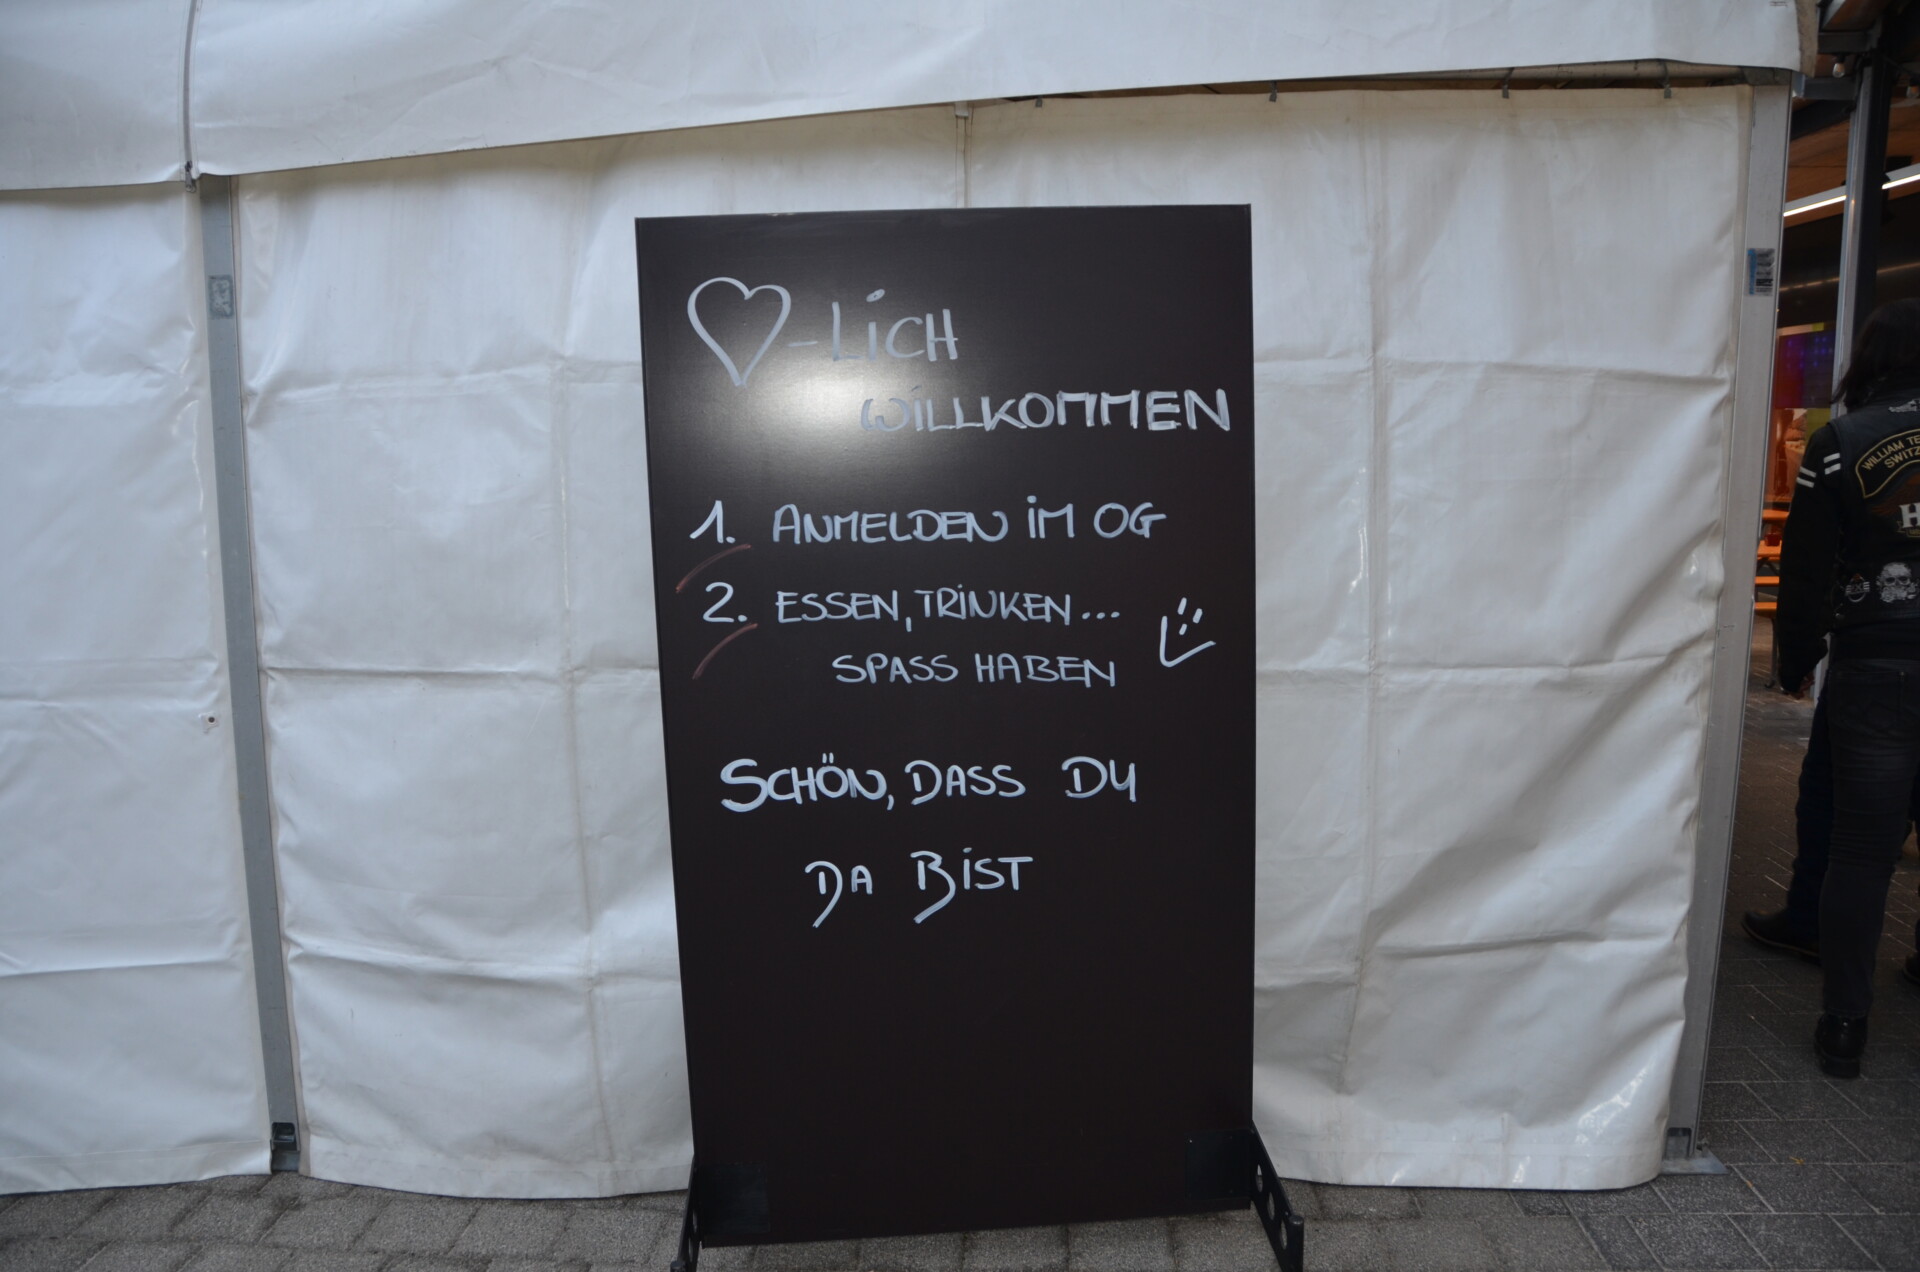 ♡-LiCH
WILLKOMMEN
1. ANMELDEN iM OG
2. ESSEN, TRiNKEN...
SPASS HABEN
SCHÖN, DASS DU
DA BiST
WILLIAM